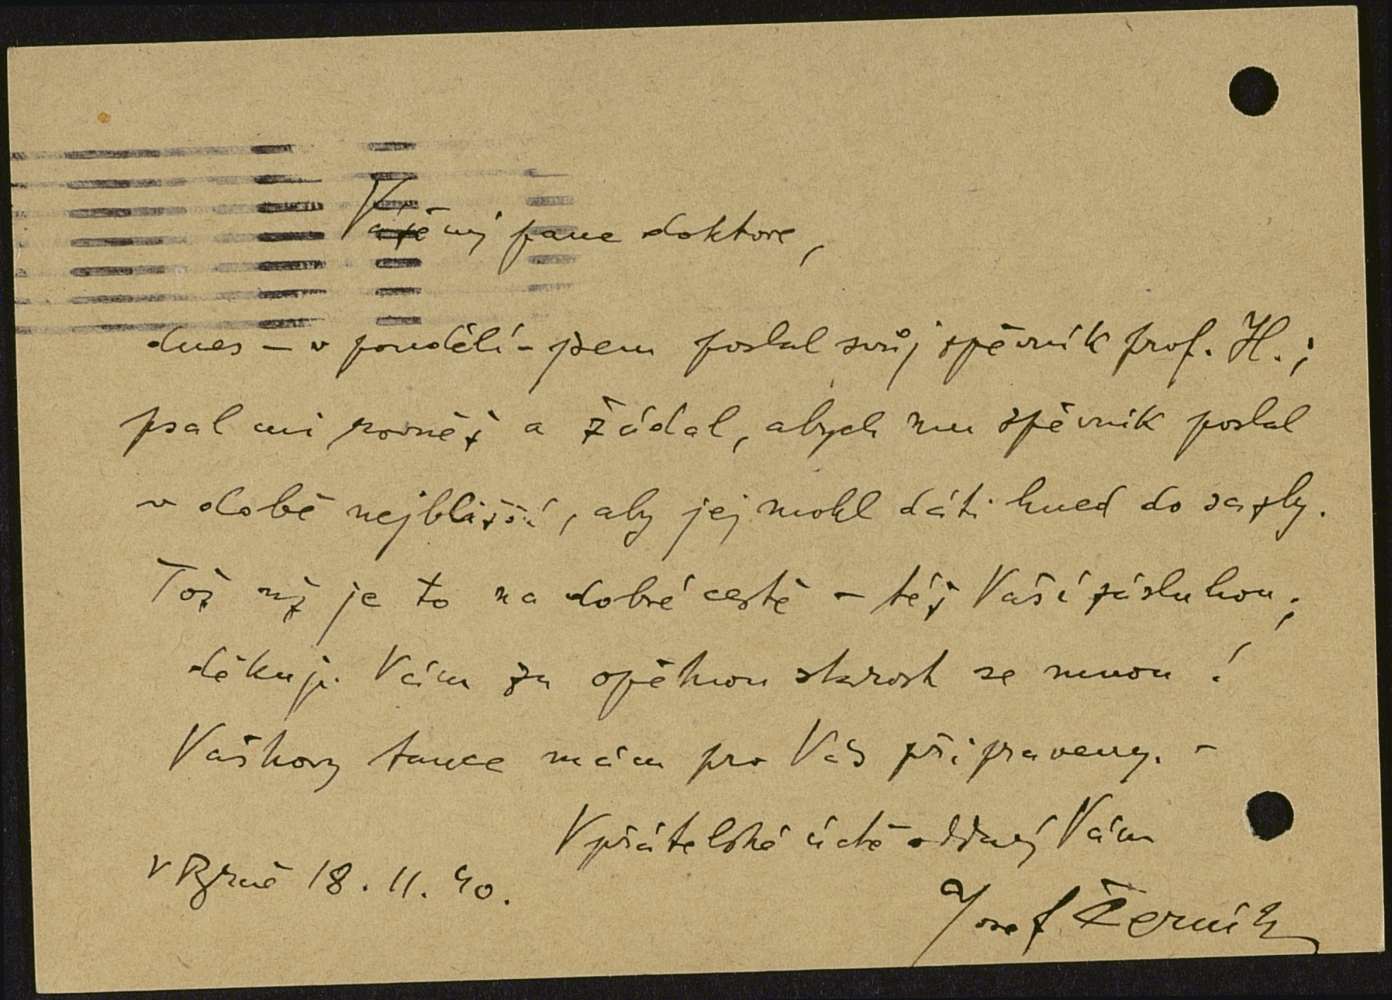 Vážený pane doktore,
dnes – v pondělí – jsem poslal svůj zpěvník prof. H.;
psal mi rovněž a žádal, abych mu zpěvník poslal
v době nejbližší, aby jej mohl dáti hned do sazby.
Tož už je to na dobré cestě – též Vaší zásluhou;
děkuji Vám za opětnou starost se mnou!
Vaškovy tance mám pro Vás připraveny. –
V přátelské úctě oddaný Vám
v Brně 18. 11. 40.
Josef Černík